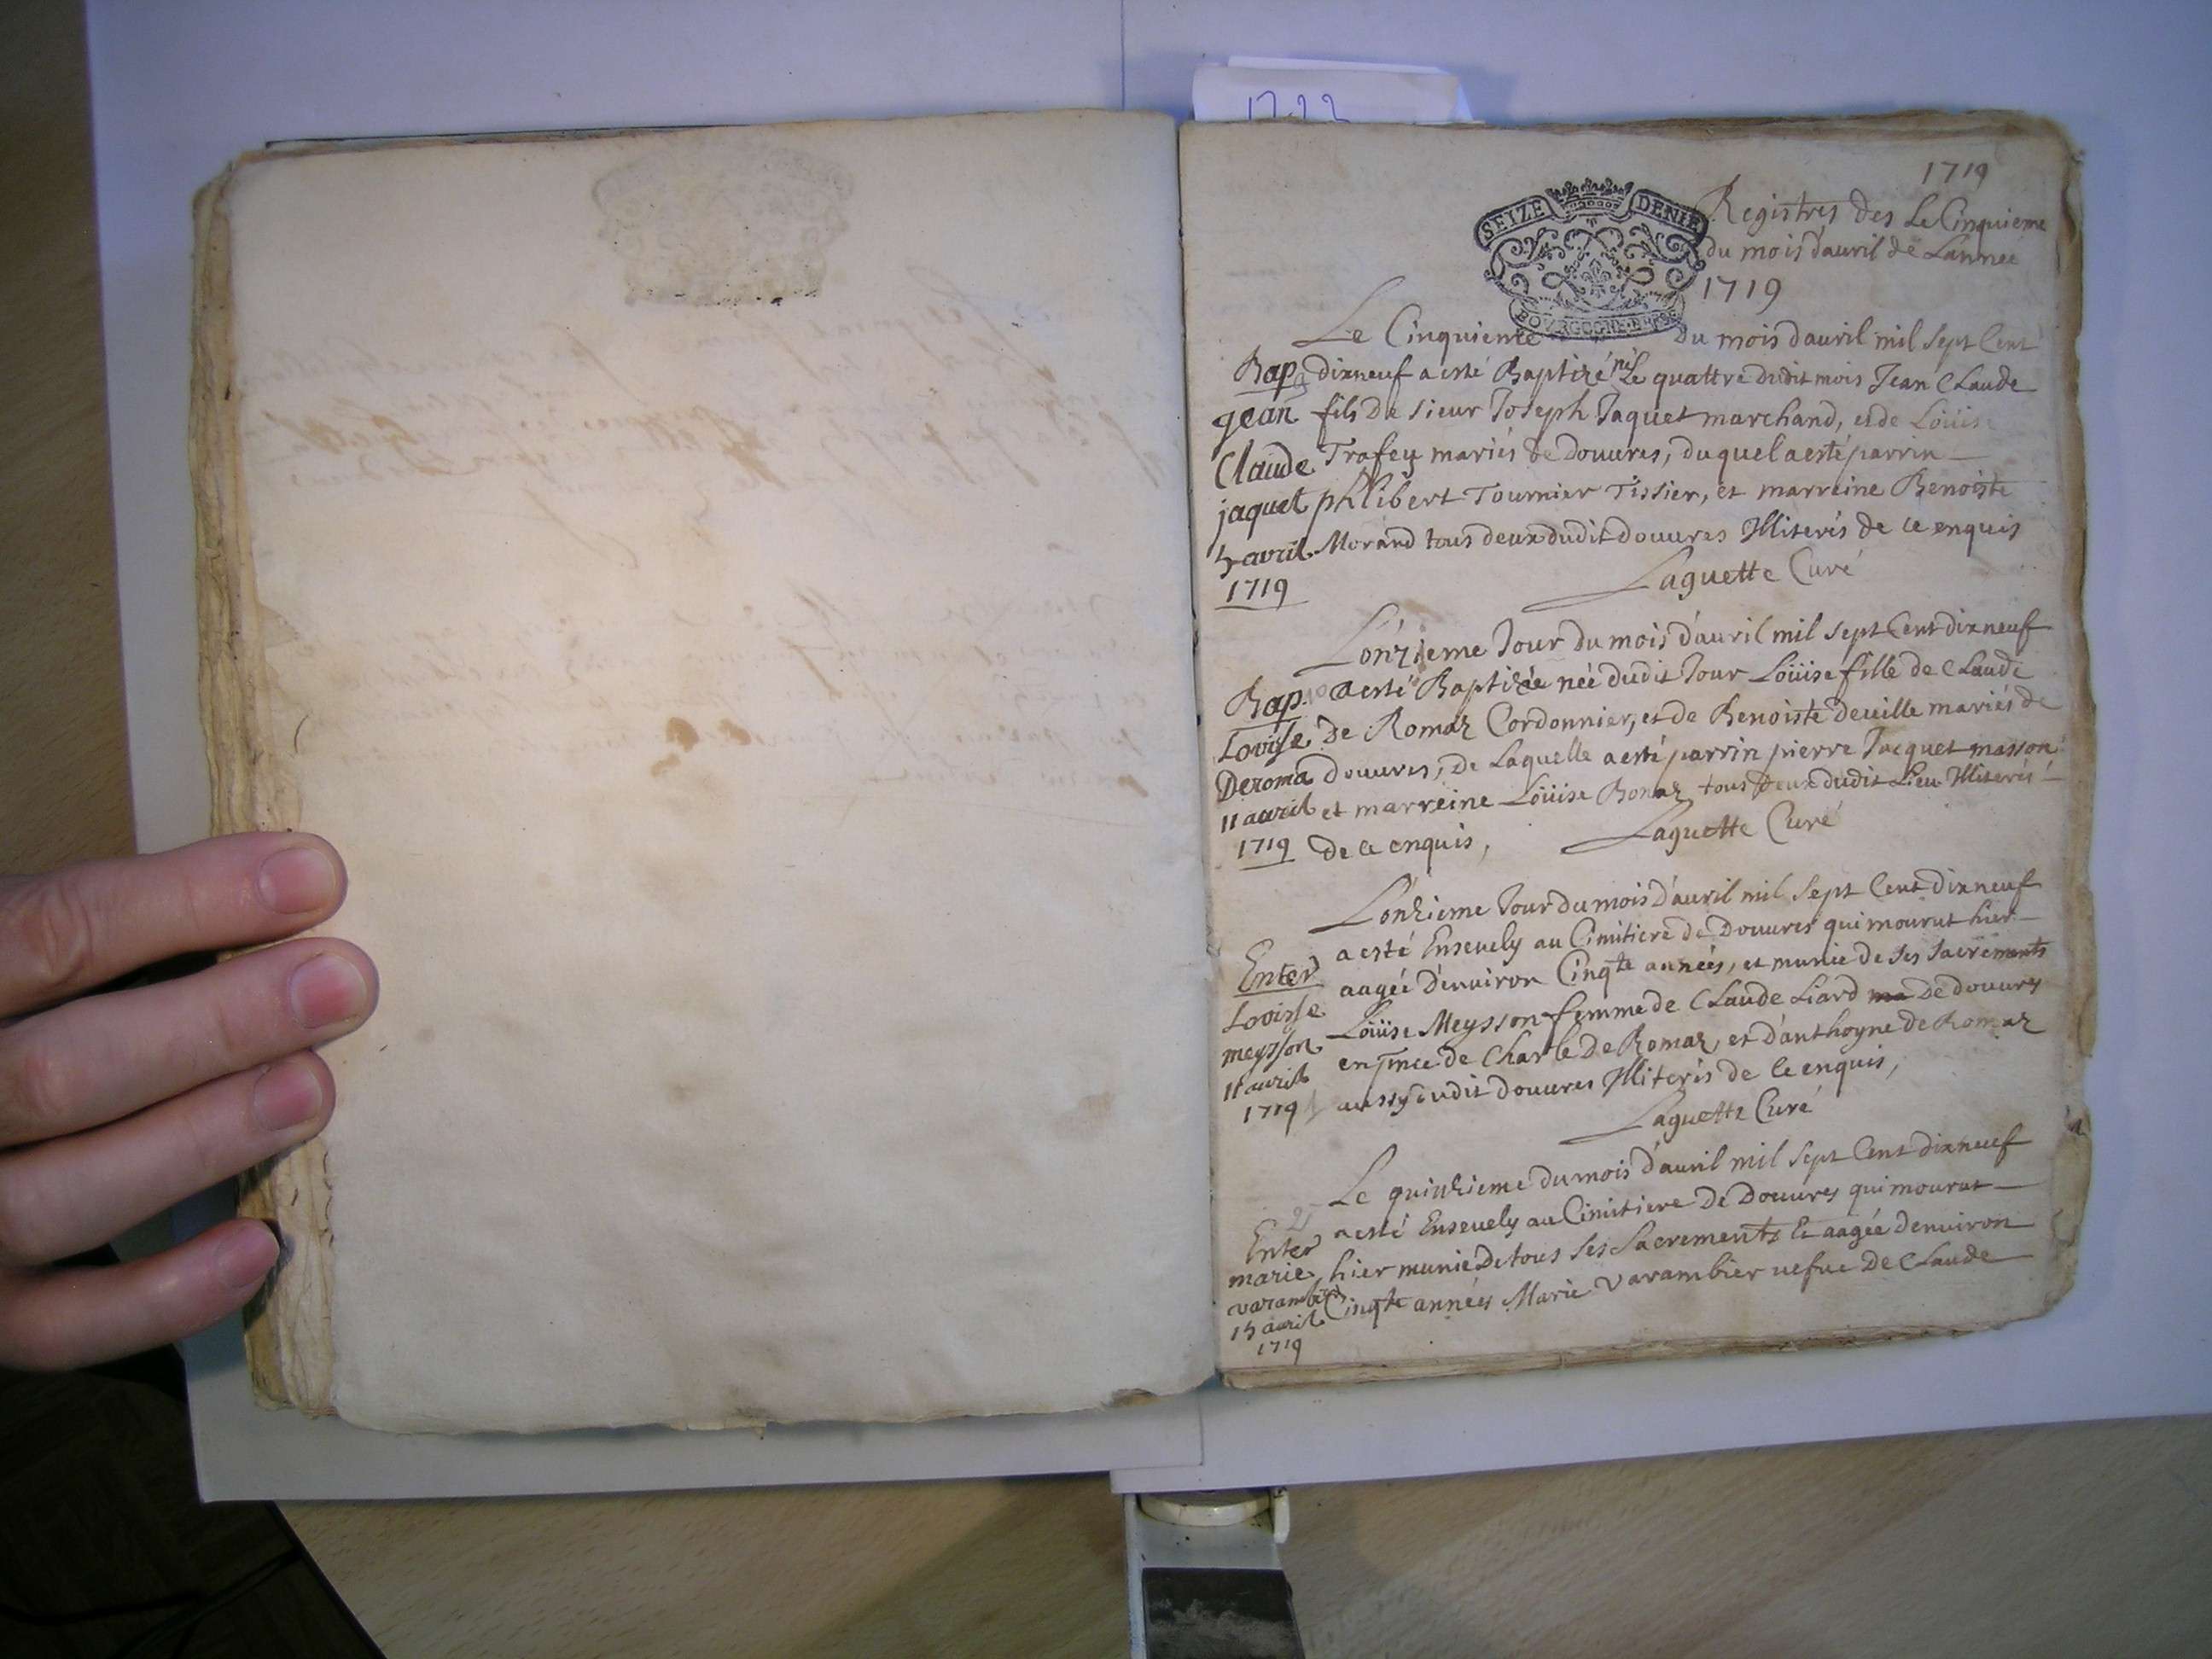 1722
1719
SEIZE DENIE
BOURGOGNE
Registres des Le Cinquieme
du mois d'auril de L'annee
1719
Le Cinquieme du mois d'auril mil sept Cent
Bap dixneuf a esté Baptizé né Le quattre dudit mois Jean CLaude
gean fils de sieur Joseph Jaquet marchand, et de Loüise
Claude Trafey mariés de douures, duquel a esté parrin
jaquet philibert Tournier Tissier, et marreine Benoiste
5 avril Morand tous deux dudit douures Illiterés de ce enquis
1719
Laguette Curé
L'onzieme Jour du mois d'auril mil sept Cent dixneuf
Bap. a esté Baptizée née dudit Jour Loüise fille de CLaude
Lovise de Romaz Cordonnier, et de Benoiste deuille mariés de
Deroma douures, de Laquelle a esté parrin pierre Jacquet masson
11 avril et marreine Loüise Bonaz tous deux dudit Lieu Illiterés
1719 de ce enquis,
Laguette Curé
L'onzieme Jour du mois d'auril mil sept Cent dixneuf
a esté Enseuely au Cimitiere de Douures qui mourut hier
Enter aagée d'enuiron Cinqte années, et munie de ses sacrements
Lovisse Loüise Meysson femme de CLaude Liard de douures
meysson en pnce de Charle De Romaz, et d'anthoyne de Romaz
11 avril aussy dudit douures Illiterés de ce enquis,
1719
Laguette Curé
Le quinzieme du mois d'auril mil sept Cent dixneuf
2
Enter a esté Enseuely au Cimitiere De Douures qui mourut
marie hier munie De tous ses Sacrements Et aagée d'enuiron
varambier Cinqte années Marie Varambier uefue De CLaude
15 avril
1719